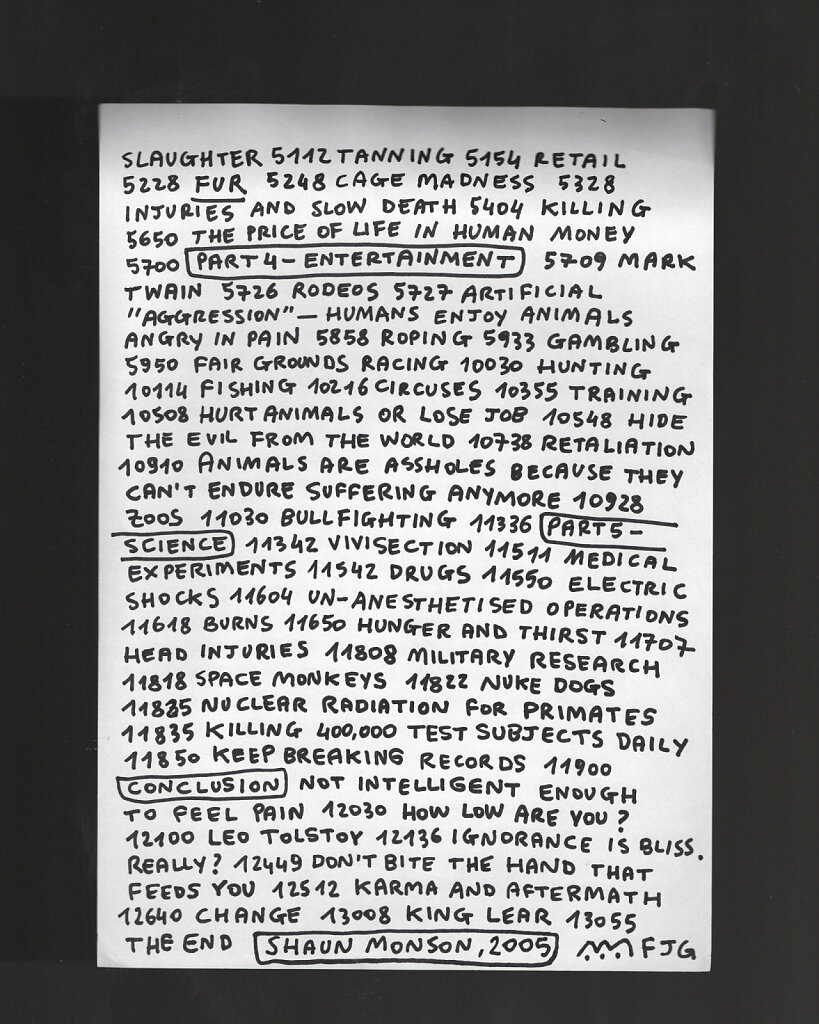 SLAUGHTER 5112 TANNING 5154 RETAIL
5228 FUR 5248 CAGE MADNESS 5328
INJURIES AND SLOW DEATH 5404 KILLING
5650 THE PRICE OF LIFE IN HUMAN MONEY
5700 PART 4 – ENTERTAINMENT 5709 MARK
TWAIN 5726 RODEOS 5727 ARTIFICIAL
"AGGRESSION" – HUMANS ENJOY ANIMALS
ANGRY IN PAIN 5858 ROPING 5933 GAMBLING
5950 FAIR GROUNDS RACING 10030 HUNTING
10114 FISHING 10216 CIRCUSES 10355 TRAINING
10508 HURT ANIMALS OR LOSE JOB 10548 HIDE
THE EVIL FROM THE WORLD 10738 RETALIATION
10910 ANIMALS ARE ASSHOLES BECAUSE THEY
CAN'T ENDURE SUFFERING ANYMORE 10928
ZOOS 11030 BULLFIGHTING 11336 PART 5 –
SCIENCE 11342 VIVISECTION 11511 MEDICAL
EXPERIMENTS 11542 DRUGS 11550 ELECTRIC
SHOCKS 11604 UN-ANESTHETISED OPERATIONS
11618 BURNS 11650 HUNGER AND THIRST 11707
HEAD INJURIES 11808 MILITARY RESEARCH
11818 SPACE MONKEYS 11822 NUKE DOGS
11825 NUCLEAR RADIATION FOR PRIMATES
11835 KILLING 400,000 TEST SUBJECTS DAILY
11850 KEEP BREAKING RECORDS 11900
CONCLUSION NOT INTELLIGENT ENOUGH
TO FEEL PAIN 12030 HOW LOW ARE YOU?
12100 LEO TOLSTOY 12136 IGNORANCE IS BLISS.
REALLY? 12449 DON'T BITE THE HAND THAT
FEEDS YOU 12512 KARMA AND AFTERMATH
12640 CHANGE 13008 KING LEAR 13055
THE END SHAUN MONSON, 2005 FJG